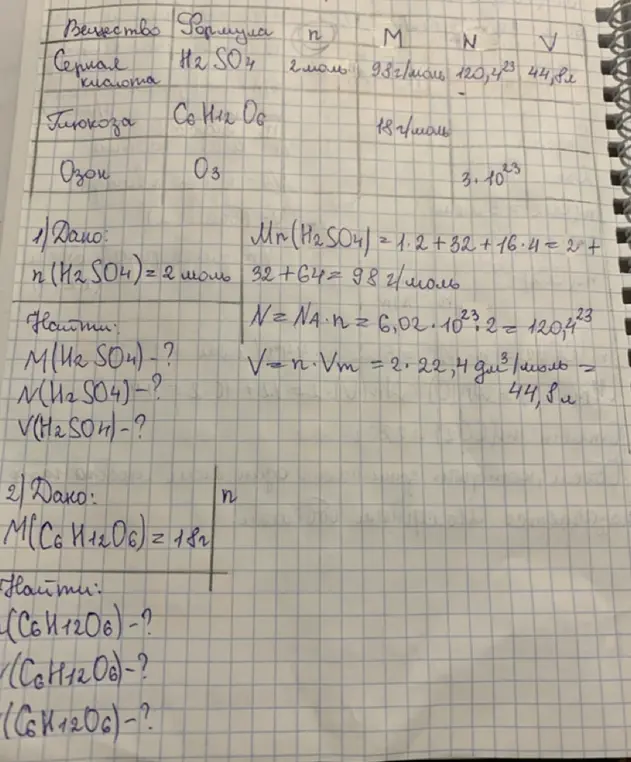 Вещество Формула n M N V
Серная кислота H2SO4 2 моль 98 г/моль 120,4²³ 44,8 л
Глюкоза C6H12O6 18 г/моль
Озон O3 3·10²³
1) Дано:
n(H2SO4) = 2 моль
Найти:
M(H2SO4) - ?
N(H2SO4) - ?
V(H2SO4) - ?
Mr(H2SO4) = 1·2 + 32 + 16·4 = 2 +
32 + 64 = 98 г/моль
N = NA·n = 6,02·10²³·2 = 120,4²³
V = n·Vm = 2·22,4 дм³/моль =
44,8 л
2) Дано:
M(C6H12O6) = 18г
n
Найти:
(C6H12O6) - ?
(C6H12O6) - ?
(C6H12O6) - ?